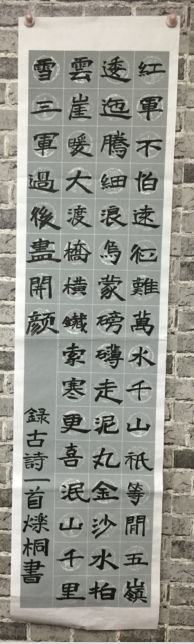 紅軍不怕遠征難萬水千山祇等閒五嶺
逶迤騰細浪烏蒙磅礴走泥丸金沙水拍
雲崖暖大渡橋橫鐵索寒更喜岷山千里
雪三軍過後盡開顏
錄古詩一首爍桐書